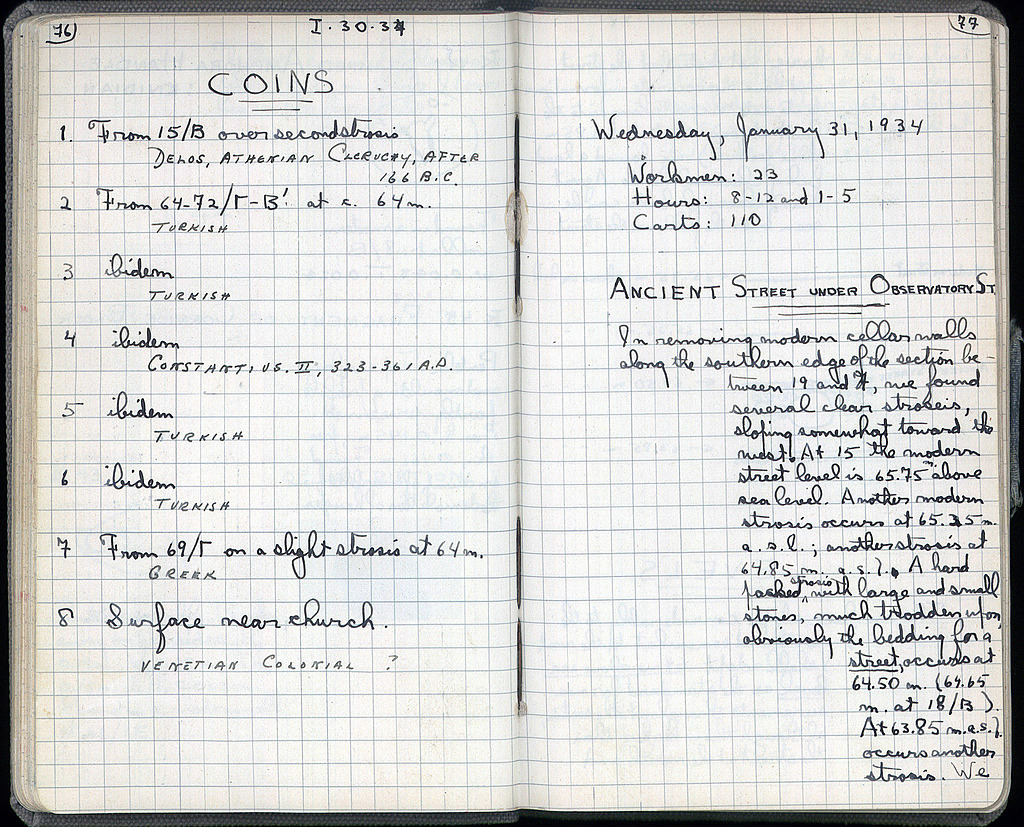 76
I.30.34
COINS
1. From 15/B over second strosis
DELOS, ATHENIAN CLERUCHY, AFTER
166 B.C.
2 From 64-72/Γ-B' at c. 64 m.
TURKISH
3 ibidem
TURKISH
4 ibidem
CONSTANTIUS. II, 323-361 A.D.
5 ibidem
TURKISH
6 ibidem
TURKISH
7 From 69/Γ on a slight strosis at 64 m.
GREEK
8 Surface near church.
VENETIAN COLONIAL ?
77
Wednesday, January 31, 1934
Workmen: 23
Hours: 8-12 and 1-5
Carts: 110
ANCIENT STREET UNDER OBSERVATORY ST
In removing modern cellar walls
along the southern edge of the section be-
tween 19 and , we found
several clear stroseis,
sloping somewhat toward the
west. At 15 the modern
street level is 65.75 m. above
sea level. Another modern
strosis occurs at 65.25 m.
a.s.l.; another strosis at
64.85 m. a.s.l. A hard
packed strosis with large and small
stones, much trodden upon,
obviously the bedding for a
street, occurs at
64.50 m. (64.65
m. at 18/B).
At 63.85 m.a.s.l.
occurs another
strosis. We